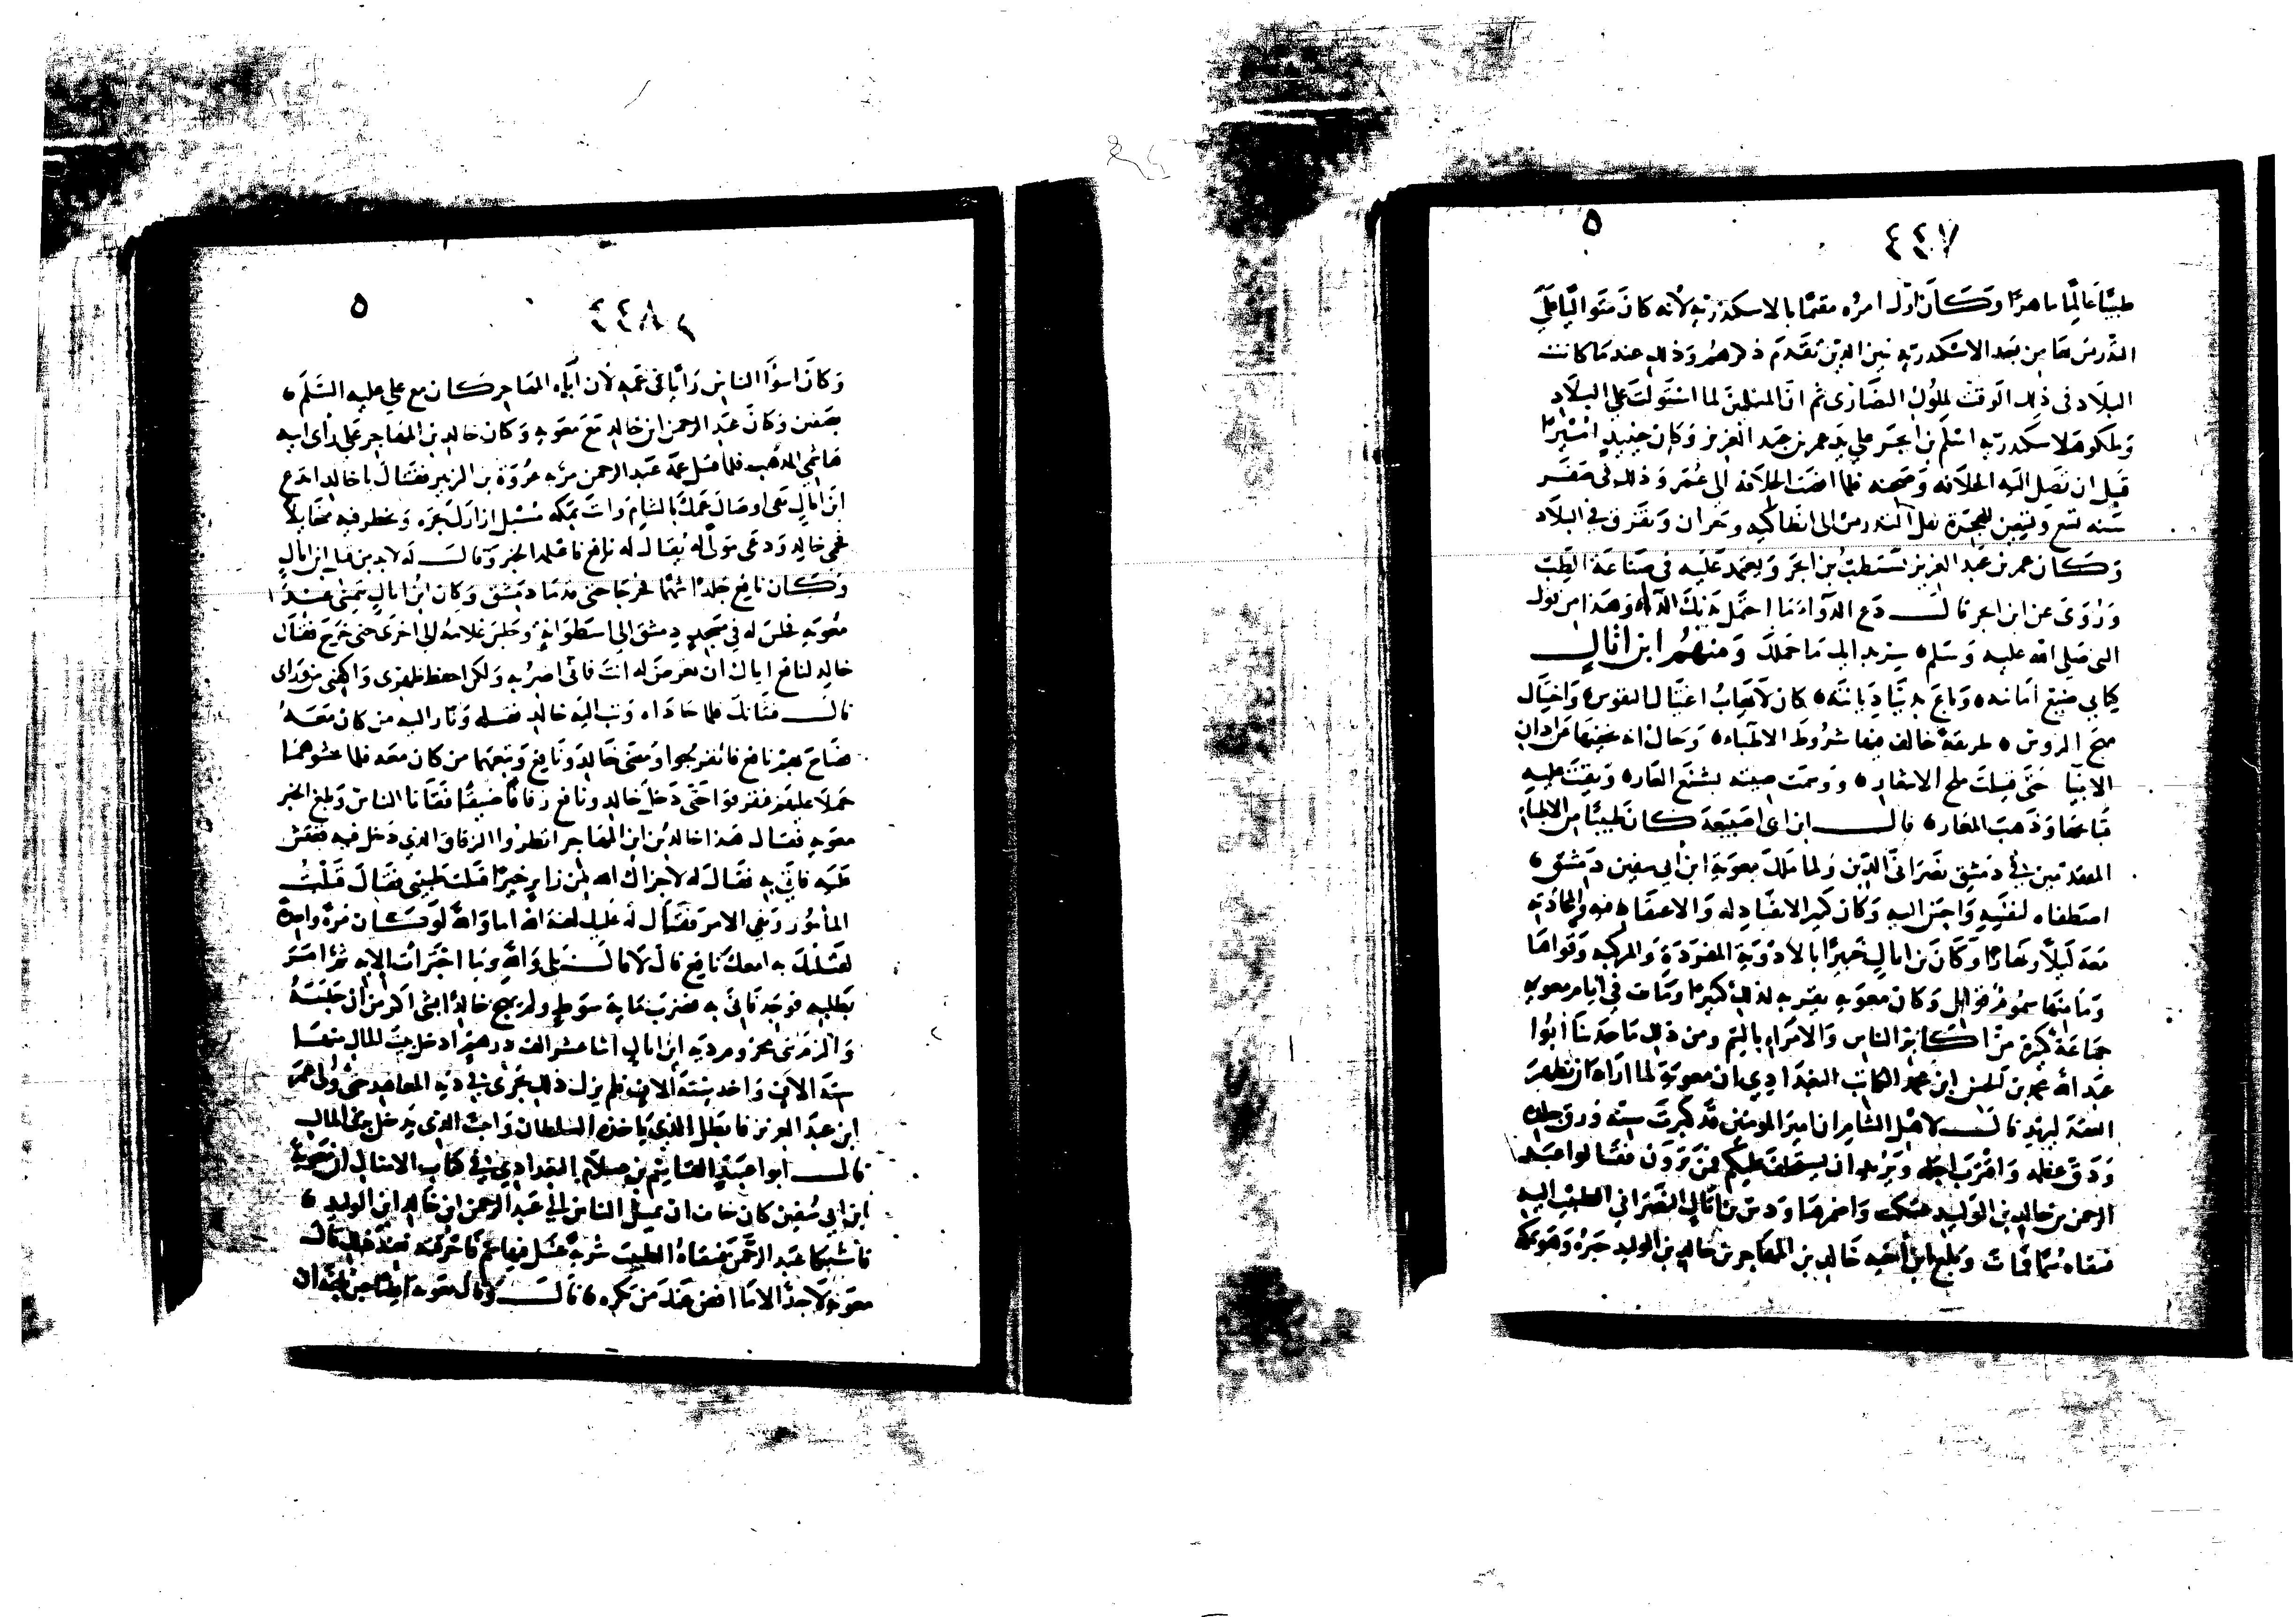 ٥
٤٤٧
طبيبًا عالمًا ماهرًا وكان اول امره مقيمًا بالاسكندريه لأنه كان متوليًا على
التدريس بها من بعد الاسكندريين الذين تقدم ذكرهم وذلك عند ما كانت
البلاد فى ذلك الوقت لملوك النصارى ثم ان المسلمين لما استولت على البلاد
وملكوا الاسكندريه اسلم بن ابجر على يد عمر بن عبد العزيز وكان حينيذٍ اميرًا
قبل ان تصل اليه الخلافه وصحبه فلما افضت الخلافه الى عمر وذلك فى صفر
سنه تسع وتسعين للهجرة نقل التدريس الى انطاكيه وحران وتفرق فى البلاد
وكان عمر بن عبد العزيز يستطب بن ابجر ويعتمد عليه فى صناعة الطب
وروى عن ابن ابجر قال دع الدواء ما احتمل بدنك الداء وهذا من قول
النبى صلى الله عليه وسلم سر بدايك ما حملك ومنهم ابن اثال
امانته وباع ديانته كان لا يهاب اغتيال النفوس واختيال
طريقة خالف فيها شروط الالباء
قال ابن ابى اصيبعة كان طبيبًا من الاطباء
المتقدمين فى دمشق نصرانى الدين ولما ملك معوية ابن ابي سفين دمشق
اصطفاه لنفسه واحسن اليه وكان كثير الافتقاد له والاعتقاد فيه والمحادثه
معه ليلًا ونهارًا وكان بن اثال خبيرًا بالادوية المفردة والمركبه وقواها
وما منها سموم قواتل وكان معويه يقربه لذلك كثيرًا ومات فى ايام معويه
جماعة كثيرة من اكابر الناس والامراء بالسم ومن ذلك ما حدثنا ابوا
عبد الله محمد بن الحسن ابن محمد الكاتب البغدادي ان معوية لما اراد ان يظهر
العقد ليزيد قال لاهل الشام ان امير المومنين قد كبرت سنه ورق جلده
ودق عظمه واقترب اجله ويريد ان يستخلف عليكم فمن ترون فقالوا عبد
الرحمن بن خالد بن الوليد فسكت واضمرها ودس بن اثال النصراني الطبيب اليه
فسقاه سمًا فمات وبلغ ابن اخيه خالد بن المهاجر بن خالد بن الوليد خبره وهو بمكه
٥
٤٤٨
وكان اسوأ الناس رأيًا فى عمه لان اباه المهاجر كان مع علي عليه السلم
بصفين وكان عبد الرحمن ابن خالد مع معويه وكان خالد بن المهاجر على رأى ابيه
هاشمي المذهب فلما قتل عمه عبد الرحمن مر به عروة بن الزبير فقال يا خالد اتدع
ابن اثال اوصال عمك بالشام وانت بمكه مسبل ازارك تجره وتخطر فيه متخايلًا
فحمى خالد ودعى مولًى له يقال له نافع فاعلمه الخبر وقال له لابد من قتل ابن اثال
وكان نافع جلدًا شهمًا فخرجا حتى قدما دمشق وكان ابن اثال يمسى عند
معويه فجلس له في مسجد دمشق الى اسطوانة وجلس غلامه الى اخرى حتى خرج فقال
خالد لنافع اياك ان تعرض له انت فانى اضربه ولكن احفظ ظهرى واكفنى من وراى
فلما حاذاه وثب اليه خالد فقتله وثار اليه من كان معه
فصاح بهم نافع فانفرجوا ومضى خالد ونافع وتبعهما من كان معه فلما غشوهما
حملا عليهم فتفرقوا حتى دخل خالد ونافع زقاقًا ضيقًا ففاتا الناس وبلغ الخبر
معويه فقال هذا خالد بن المهاجر انظروا الزقاق الذي دخل فيه ففتش
عليه فاتى به فقال له لا جزاك الله من زاير خيرًا قتلت طبيبى فقال قتلت
المأمور وبقي الامر فقال له عليك لعنة الله اما والله لو كان تشهد مرة واحدة
لقتلتك به امعك نافع قال لا قال بلى والله وما اجترأت الا به ثم امر
بطلبه فوجد فاتى به فضرب مائة سوط ولم يهج خالدًا بشى اكثر من ان حبسه
والزم بنى مخزوم دية ابن اثال اثنا عشر الف درهم ادخل بيت المال منها
ستة الاف واخذ ستة الاف فلم يزل ذلك يجرى فى دية المعاهد حتى ولى عمر
ابن عبد العزيز فابطل الذى ياخذه السلطان واثبت الذى يدخل بيت المال
قال ابوا عبيد القاسم بن سلام البغدادي فى كتاب الامثال ان معوية
ابن ابي سفين كان خاف ان يميل الناس الى عبد الرحمن ابن خالد ابن الوليد
فاشتكا عبد الرحمن فسقاه الطبيب شربة عسل فيها سم فاحرقته فعند ذلك قال
معويه لا جد الا ما اقعص عنك من تكره قال وقال معويه ايضًا حين بلغه ان